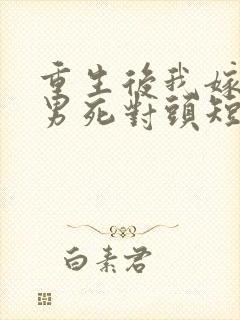 重生後我嫁
男死對頭短
白素君